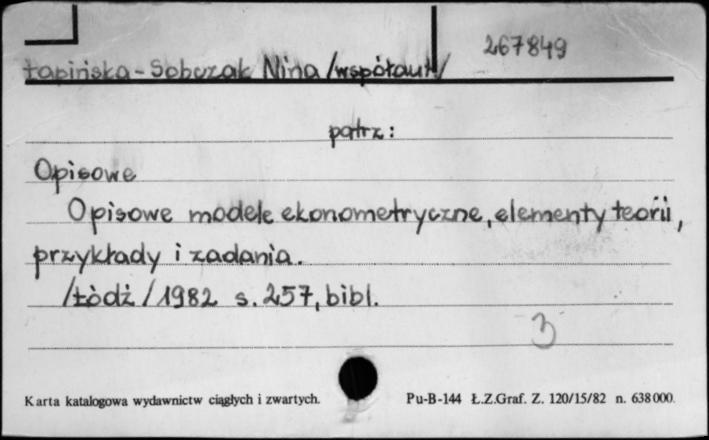 267849
Łapińska-Sobczak Nina /współaut/
patrz:
Opisowe
Opisowe modele ekonometryczne, elementy teorii,
przykłady i zadania.
/Łódź/1982 s. 257, bibl.
3
Karta katalogowa wydawnictw ciągłych i zwartych. Pu-B-144 Ł.Z.Graf. Z. 120/15/82 n. 638000.